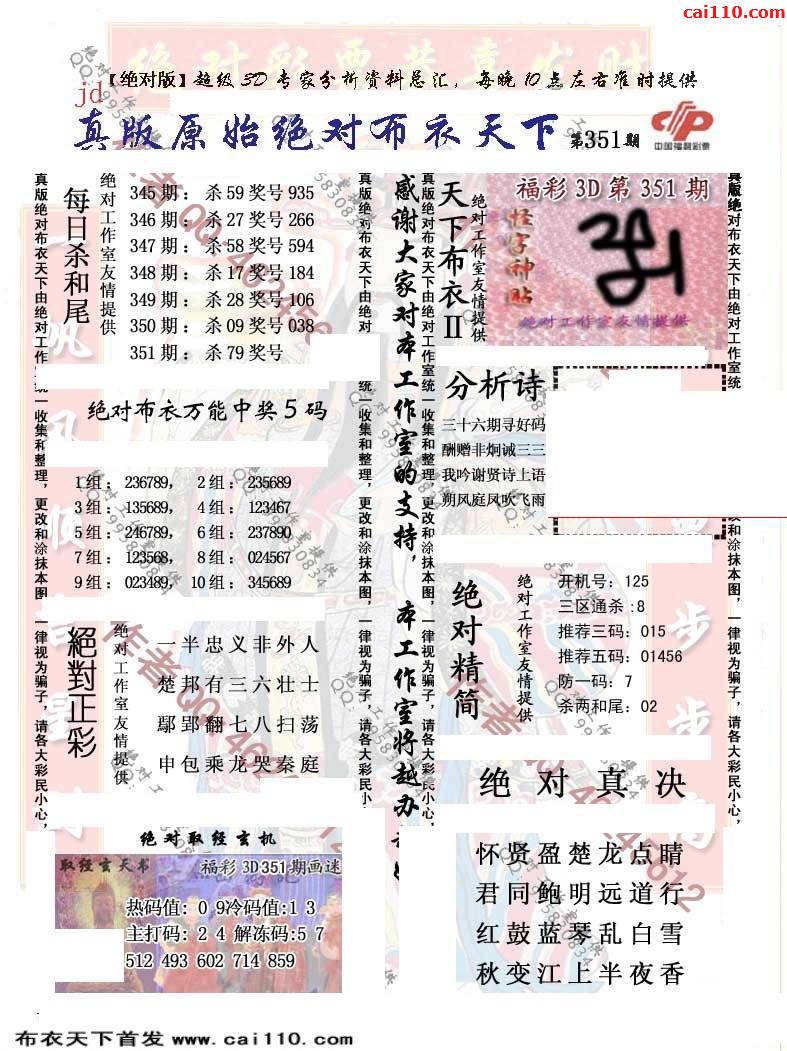 cai110.com
【绝对版】超级3D专家分析资料总汇，每晚10点左右准时提供
jd
真版原始绝对布衣天下 第351期
中国福利彩票
每日杀和尾
绝对工作室友情提供
345期：杀59奖号935
346期：杀27奖号266
347期：杀58奖号594
348期：杀17奖号184
349期：杀28奖号106
350期：杀09奖号038
351期：杀79奖号
绝对布衣万能中奖5码
1组：236789，2组：235689
3组：135689，4组：123467
5组：246789，6组：237890
7组：123568，8组：024567
9组：023489，10组：345689
絕對正彩
绝对工作室友情提供
一半忠义非外人
楚邦有三六壮士
鄢郢翻七八扫荡
申包乘龙哭秦庭
绝对取经玄机
取经玄天书
福彩3D351期画迷
热码值：0 9冷码值:1 3
主打码：2 4 解冻码:5 7
512 493 602 714 859
真版绝对布衣天下由绝对工作室统一收集和整理，更改和涂抹本图，一律视为骗子，请各大彩民小心，
真版绝对布衣天下由绝对
统一收集和整理，更改和涂抹本图，一律视为骗子，请各大彩民小
感谢大家对本工作室的支持，本工作室将越办
真版绝对布衣天下由绝对工作室统一收集和整理，更改和涂抹本图，一律视为骗子，请各大彩民小心，
天下布衣II
绝对工作室友情提供
福彩3D第351期
怪字神贴
绝对工作室友情提供
分析诗
三十六期寻好码
酬赠非炯诚三三
我吟谢贤诗上语
朔风庭凤吹飞雨
绝对精简
绝对工作室友情提供
开机号：125
三区通杀:8
推荐三码：015
推荐五码：01456
防一码：7
杀两和尾：02
绝对真决
怀贤盈楚龙点睛
君同鲍明远道行
红鼓蓝琴乱白雪
秋变江上半夜香
真版绝对布衣天下由绝对工作室统
改和涂抹本图，一律视为骗子，请各大彩民小心，
布衣天下首发 www.cai110.com